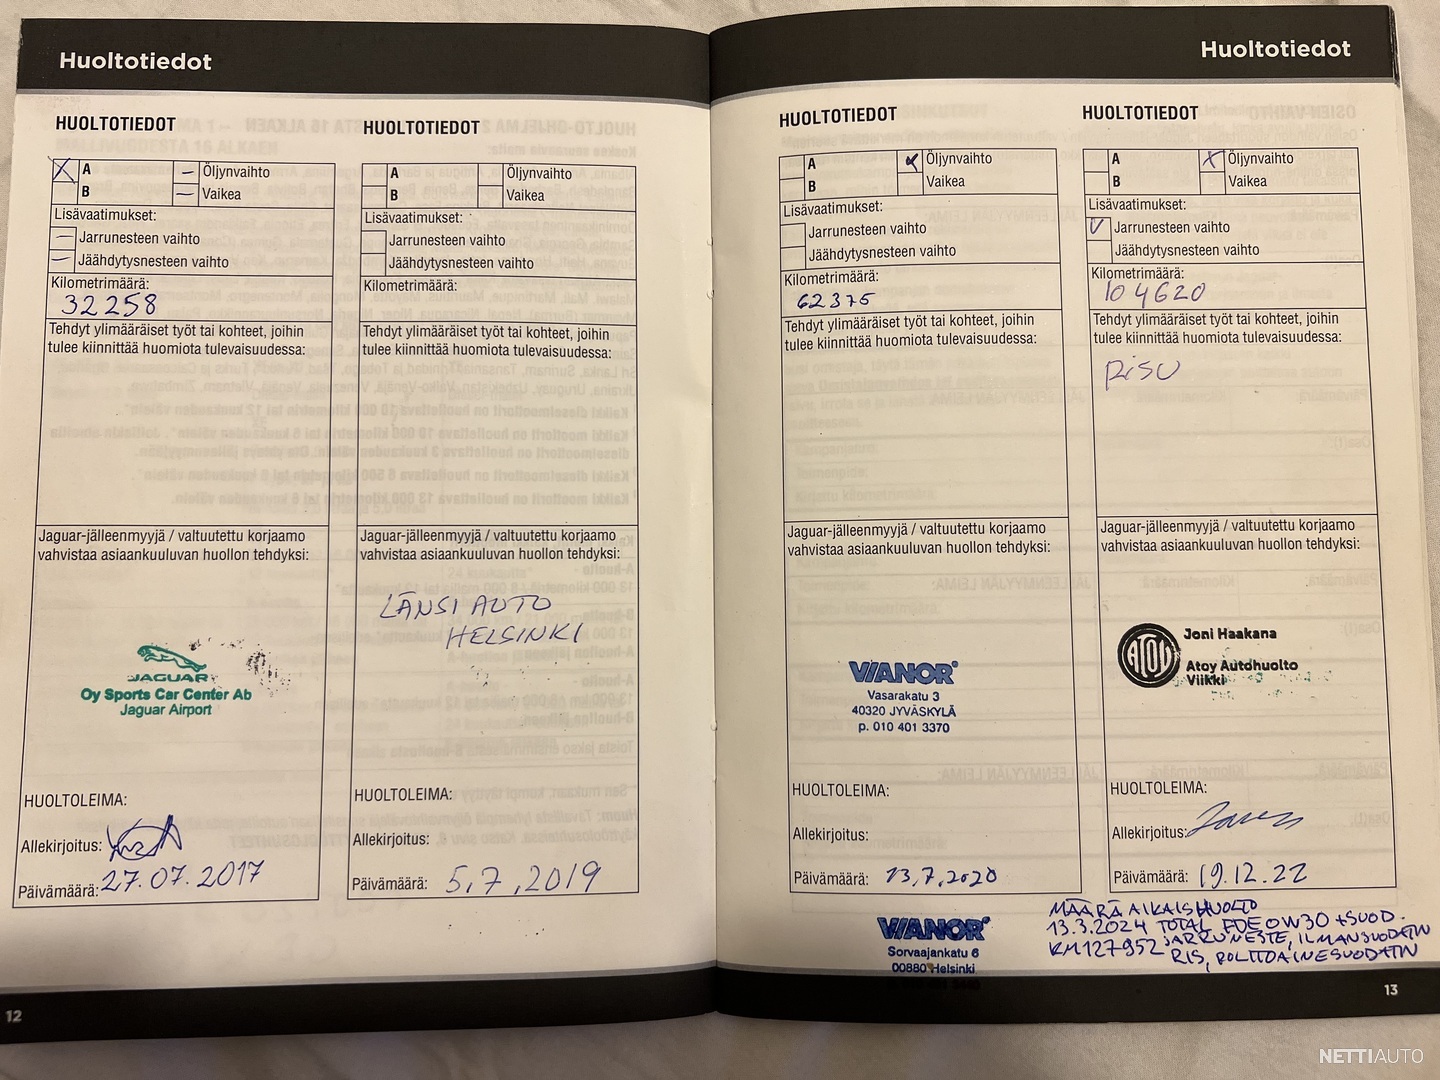 Huoltotiedot
HUOLTOTIEDOT
A
B
Öljynvaihto
Vaikea
Lisävaatimukset:
Jarrunesteen vaihto
Jäähdytysnesteen vaihto
Kilometrimäärä:
32258
Tehdyt ylimääräiset työt tai kohteet, joihin
tulee kiinnittää huomiota tulevaisuudessa:
Jaguar-jälleenmyyjä / valtuutettu korjaamo
vahvistaa asiaankuuluvan huollon tehdyksi:
JAGUAR
Oy Sports Car Center Ab
Jaguar Airport
HUOLTOLEIMA:
Allekirjoitus:
Päivämäärä: 27.07.2017
HUOLTOTIEDOT
A
B
Öljynvaihto
Vaikea
Lisävaatimukset:
Jarrunesteen vaihto
Jäähdytysnesteen vaihto
Kilometrimäärä:
Tehdyt ylimääräiset työt tai kohteet, joihin
tulee kiinnittää huomiota tulevaisuudessa:
Jaguar-jälleenmyyjä / valtuutettu korjaamo
vahvistaa asiaankuuluvan huollon tehdyksi:
LÄNSI AUTO
HELSINKI
HUOLTOLEIMA:
Allekirjoitus:
Päivämäärä: 5.7.2019
12
Huoltotiedot
HUOLTOTIEDOT
A
B
Öljynvaihto
Vaikea
Lisävaatimukset:
Jarrunesteen vaihto
Jäähdytysnesteen vaihto
Kilometrimäärä:
62375
Tehdyt ylimääräiset työt tai kohteet, joihin
tulee kiinnittää huomiota tulevaisuudessa:
Jaguar-jälleenmyyjä / valtuutettu korjaamo
vahvistaa asiaankuuluvan huollon tehdyksi:
VIANOR
Vasarakatu 3
40320 JYVÄSKYLÄ
p. 010 401 3370
HUOLTOLEIMA:
Allekirjoitus:
Päivämäärä: 13.7.2020
VIANOR
Sorvaajankatu 6
00880 Helsinki
HUOLTOTIEDOT
A
B
Öljynvaihto
Vaikea
Lisävaatimukset:
Jarrunesteen vaihto
Jäähdytysnesteen vaihto
Kilometrimäärä:
104620
Tehdyt ylimääräiset työt tai kohteet, joihin
tulee kiinnittää huomiota tulevaisuudessa:
RiSU
Jaguar-jälleenmyyjä / valtuutettu korjaamo
vahvistaa asiaankuuluvan huollon tehdyksi:
ATOY
Joni Haakana
Atoy Autohuolto
Viikki
HUOLTOLEIMA:
Allekirjoitus:
Päivämäärä: 19.12.22
MÄÄRÄAIKAISHUOLTO
13.3.2024 TOTAL FDE 0W30 +SUOD.
KM 127952 JARRUNESTE, ILMANSUODATIN
RIS, POLTTOAINESUODATIN
13
NETTIAUTO